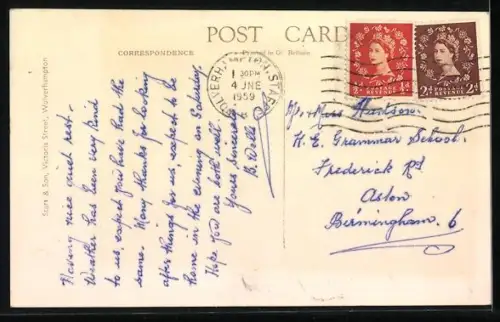 POST CARD
CORRESPONDENCE
Printed in Gt. Britain
Having nice quiet rest.
Weather has been very kind
to us, expect you have had the
same. Many thanks for looking
after things for us, expect to be
home in the evening on Saturday.
Hope you are both well.
Yours Sincerely
B. Wells
WOLVERHAMPTON STAFFS
1 30PM
4 JNE
1959
POSTAGE REVENUE
½d
POSTAGE REVENUE
2d 2d
K. E. Grammar School.
Frederick Rd
Aston
Birmingham. 6
& Son, Victoria Street, Wolverhampton